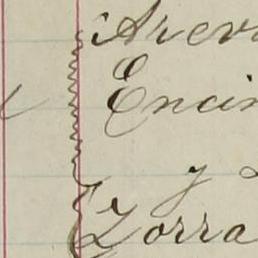 Arev
Encin
y
Zorra